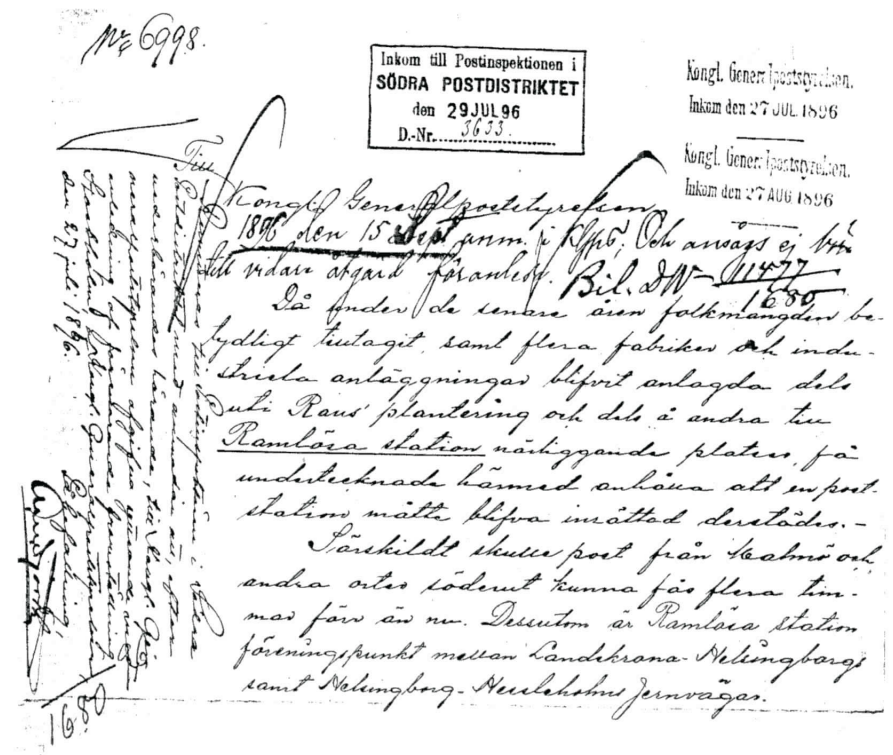 No 6998.
Inkom till Postinspektionen i
SÖDRA POSTDISTRIKTET
den 29 JUL 96
D.-Nr. 3633.
Kongl. Generalpoststyrelsen.
Inkom den 27 JUL. 1896
Kongl. Generalpoststyrelsen.
Inkom den 27 AUG. 1896
Till
Kongl. Generalpoststyrelsen
1896 den 15 Sept anm. i K.; Och ansågs ej
till vidare åtgärd föranleda.
Bil. DN 11477
1680
Då under de senare åren folkmängden be-
tydligt tilltagit, samt flera fabriker och indu-
striela anläggningar blifvit anlagda dels
uti Raus' plantering och dels å andra till
Ramlösa station närliggande platser, få
undertecknade härmed anhålla att en post-
station måtte blifva inrättad derstädes. -
Särskildt skulle post från Malmö och
andra orter söderut kunna fås flera tim-
mar förr än nu. Dessutom är Ramlösa station
föreningspunkt mellan Landskrona-Helsingborgs
samt Helsingborg-Hessleholms Jernvägar.
Remitteras till Postinspektionen i Södra
distriktet med anhållan att, efter
vederbörandes hörande, till Kongl. General-
poststyrelsen afgifva
Stockholm Kongl. Generalpoststyrelsen
den 27 juli 1896.